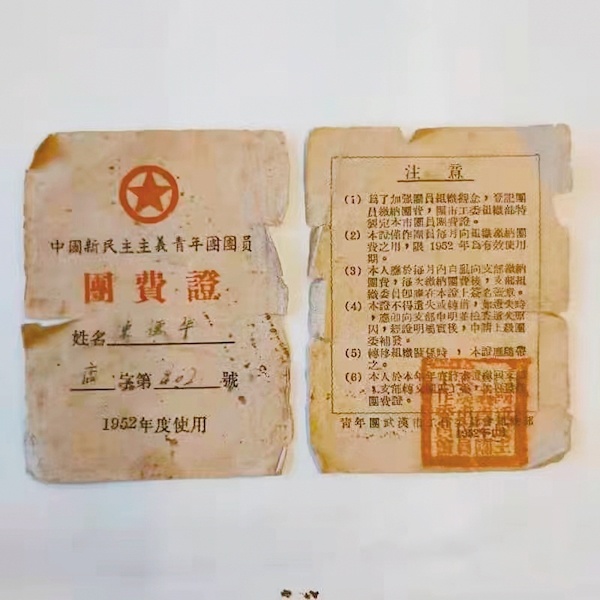 中國新民主主義青年團團員
團費證
姓名
字第 202 號
1952年度使用
注意
(1) 爲了加强團員組織觀念，登記團
員繳納團費，團市工委組織部特
製定本市團員團費證。
(2) 本證僅作團員每月向組織繳納團
費之用，限1952年爲有效使用
期。
(3) 本人應於每月內自組向支部繳納
團費，每次繳納團費後，支部組
織委員即應在本證上簽名蓋章。
(4) 本證不得遺失或轉借，如遺失時
，應即向支部申明並檢查遺失原
因，經證明屬實後，申請上級團
委補發。
(5) 轉移組織關係時，本證應隨帶
之。
(6) 本人於本年
團費證。
青年團武漢市工